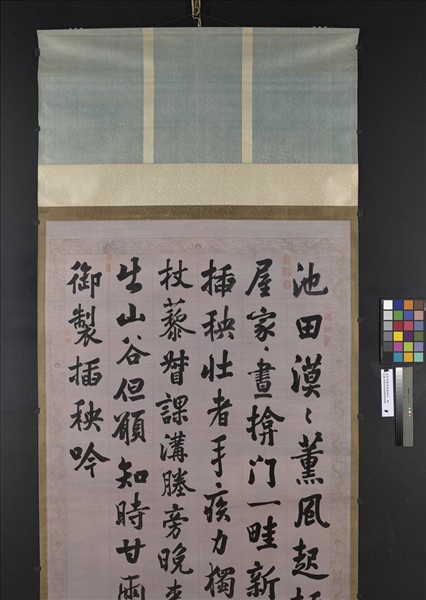 池田漠〻薰風起
屋家〻晝揜门一畦新
插秧壮者手疾力獨
杖藜督課溝塍旁晚
生山谷但願知時甘雨
御製插秧吟